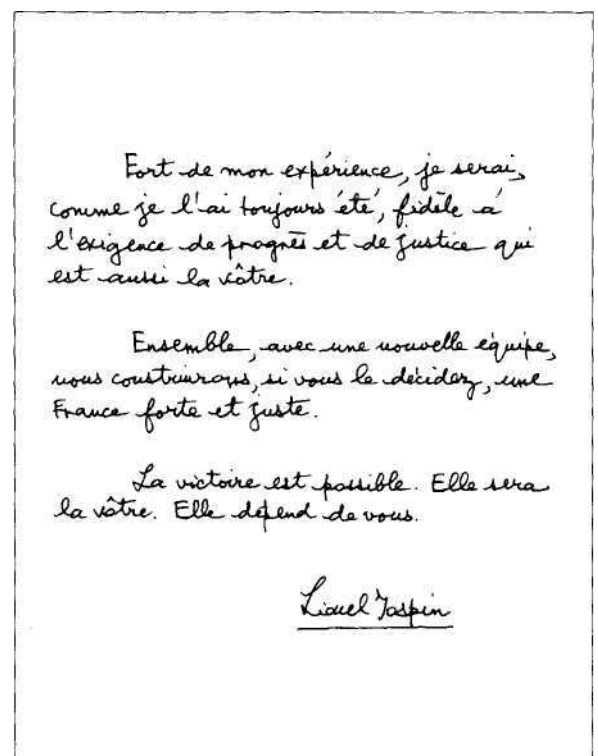 Fort de mon expérience, je serai,
comme je l'ai toujours été, fidèle à
l'exigence de progrès et de justice qui
est aussi la vôtre.
Ensemble, avec une nouvelle équipe,
nous construirons, si vous le décidez, une
France forte et juste.
La victoire est possible. Elle sera
la vôtre. Elle dépend de vous.
Lionel Jospin